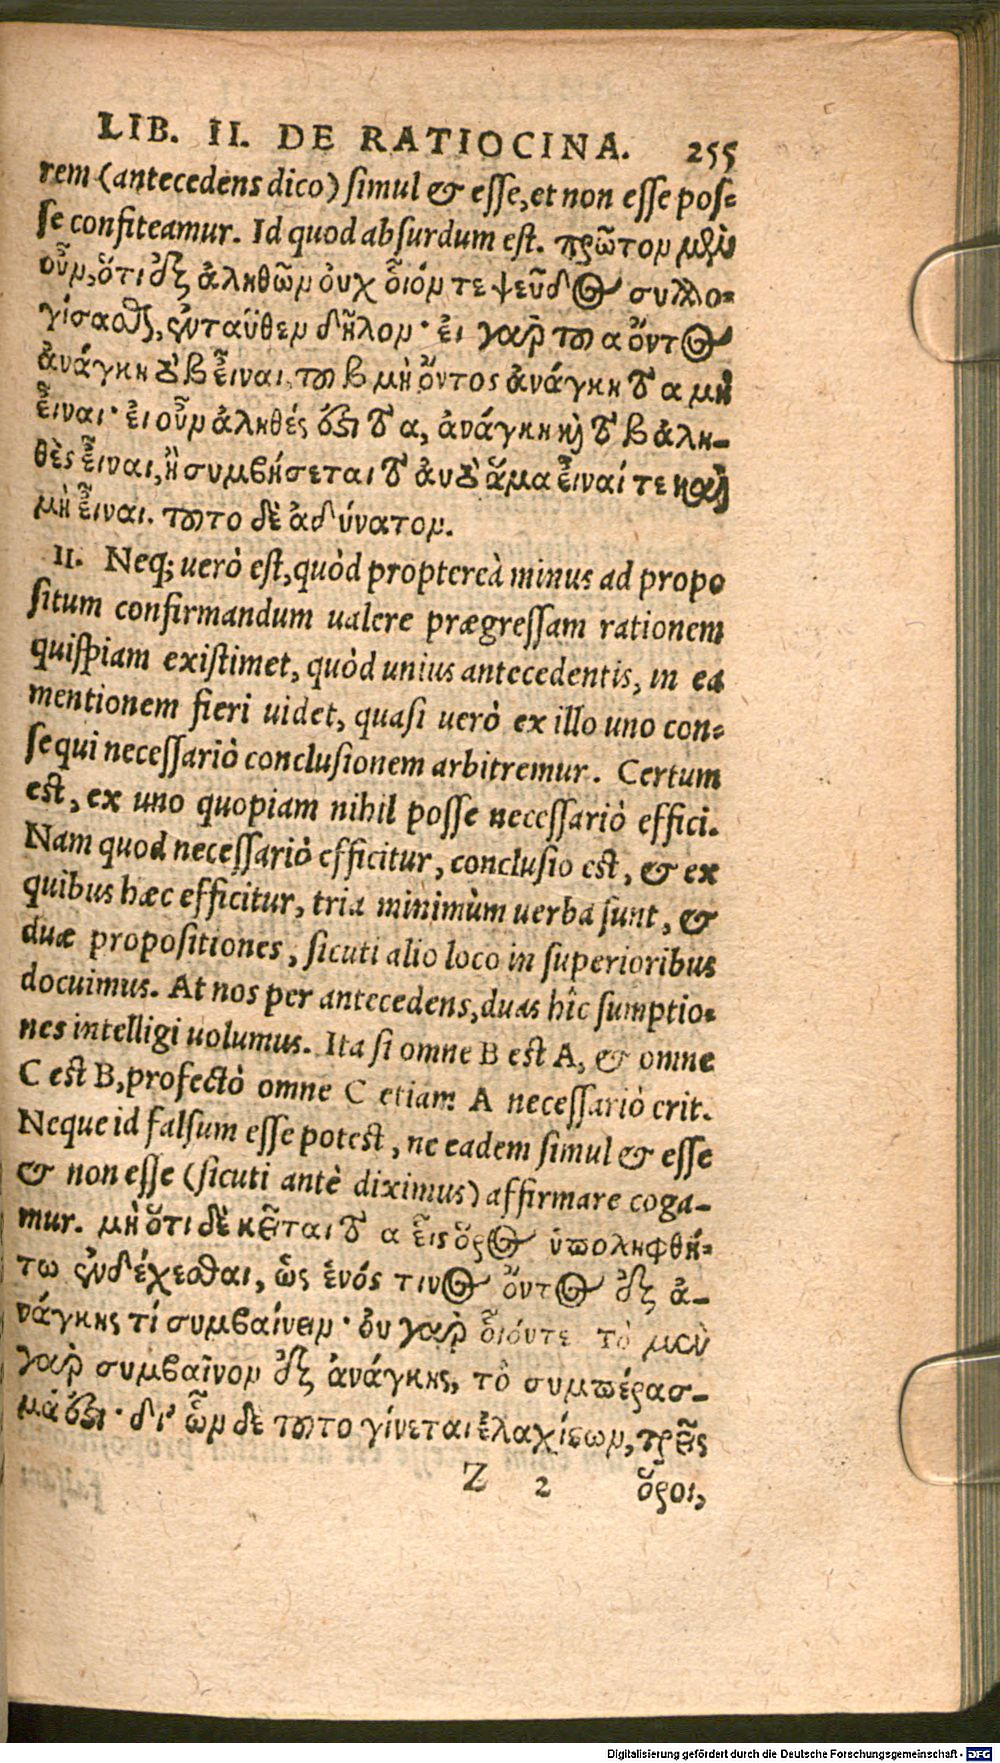 LIB. II. DE RATIOCINA. 255
rem (antecedens dico) simul & esse, et non esse pos=
se confiteamur. Id quod absurdum est. πρῶτον μὲν
οὖν, ὅτι ἐξ ἀληθῶν οὐχ οἷόν τε ψεῦδος συλλο=
γίσασθαι, ἐνταῦθεν δῆλον· εἰ γὰρ τοῦ α ὄντος
ἀνάγκη τὸ β εἶναι, τοῦ β μὴ ὄντος ἀνάγκη τὸ α μὴ
εἶναι· εἰ οὖν ἀληθές ἐστι τὸ α, ἀνάγκη καὶ τὸ β ἀλη-
θὲς εἶναι, ἢ συμβήσεται τὸ αὐτὸ ἅμα εἶναί τε καὶ
μὴ εἶναι. τοῦτο δὲ ἀδύνατον.
II. Neq; uerò est, quòd proptereà minus ad propo
situm confirmandum ualere prægressam rationem
quispiam existimet, quòd unius antecedentis, in ea
mentionem fieri uidet, quasi uerò ex illo uno con=
sequi necessariò conclusionem arbitremur. Certum
est, ex uno quopiam nihil posse necessariò effici.
Nam quod necessariò efficitur, conclusio est, & ex
quibus hæc efficitur, tria minimùm uerba sunt, &
duæ propositiones, sicuti alio loco in superioribus
docuimus. At nos per antecedens, duas hîc sumptio=
nes intelligi uolumus. Ita si omne B est A, & omne
C est B, profectò omne C etiam A necessariò erit.
Neque id falsum esse potest, ne eadem simul & esse
& non esse (sicuti antè diximus) affirmare coga-
mur. μὴ ὅτι δὲ κεῖται τὸ α εἷς ὅρος ὑποληφθή=
τω ἐνδέχεσθαι, ὡς ἑνός τινος ὄντος ἐξ ἀ-
νάγκης τί συμβαίνειν· οὐ γὰρ οἷόντε τὸ μὲν
γὰρ συμβαῖνον ἐξ ἀνάγκης, τὸ συμπέρασ-
μά ἐστι· δι' ὧν δὲ τοῦτο γίνεται ἐλαχίστων, τρεῖς
Z 2 ὅροι,
Digitalisierung gefördert durch die Deutsche Forschungsgemeinschaft - DFG